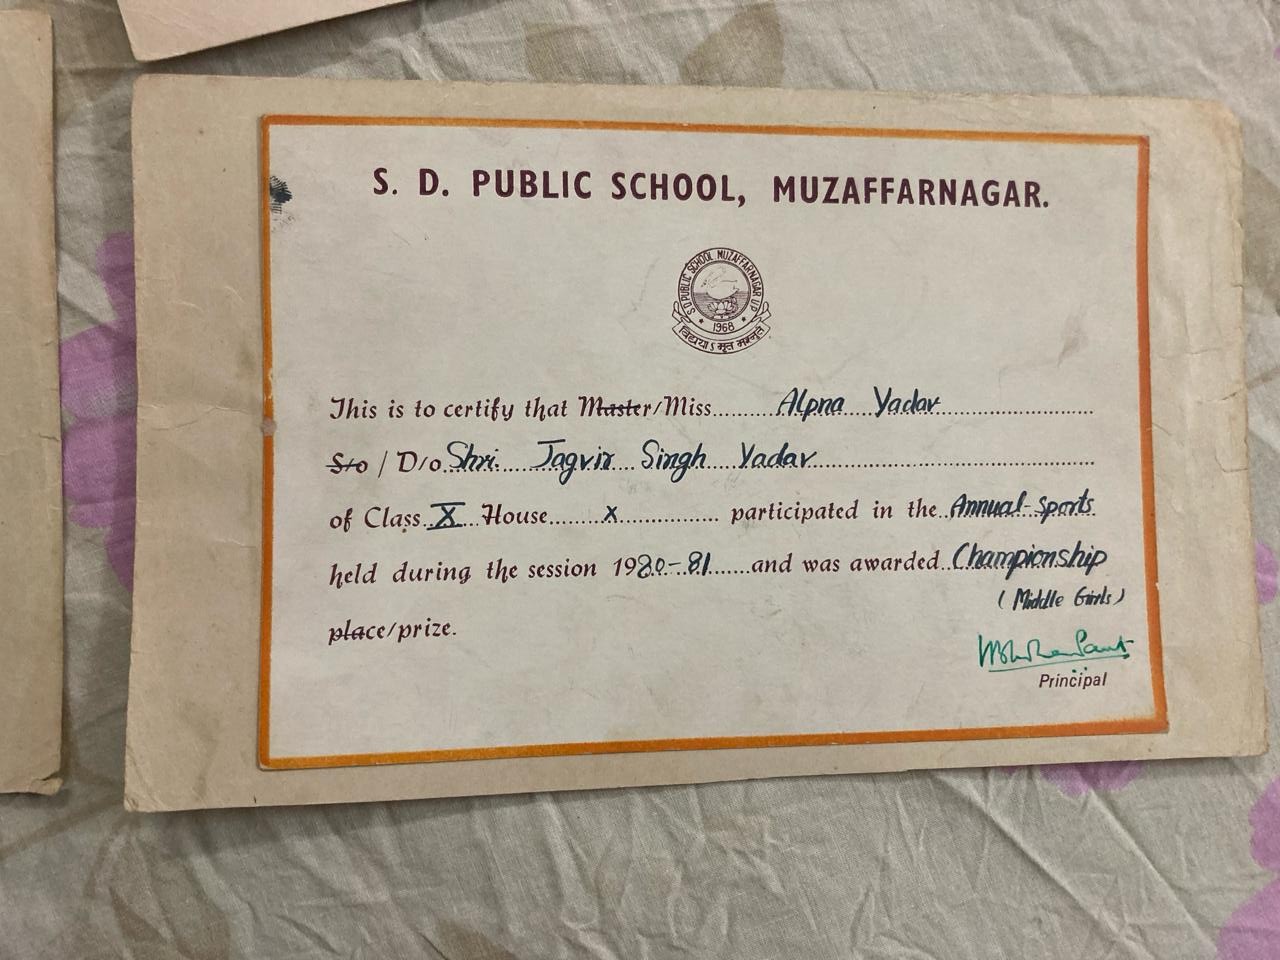 S. D. PUBLIC SCHOOL, MUZAFFARNAGAR.
S D PUBLIC SCHOOL MUZAFFARNAGAR U P
1968
विद्यया ऽ मृत मश्नुते
This is to certify that Master/Miss........Alpna Yadav
S/o / D/o Shri. Jagvir Singh Yadav
of Class X House x participated in the Annual-Sports
held during the session 1980-81 and was awarded Championship
(Middle Girls)
place/prize.
Principal